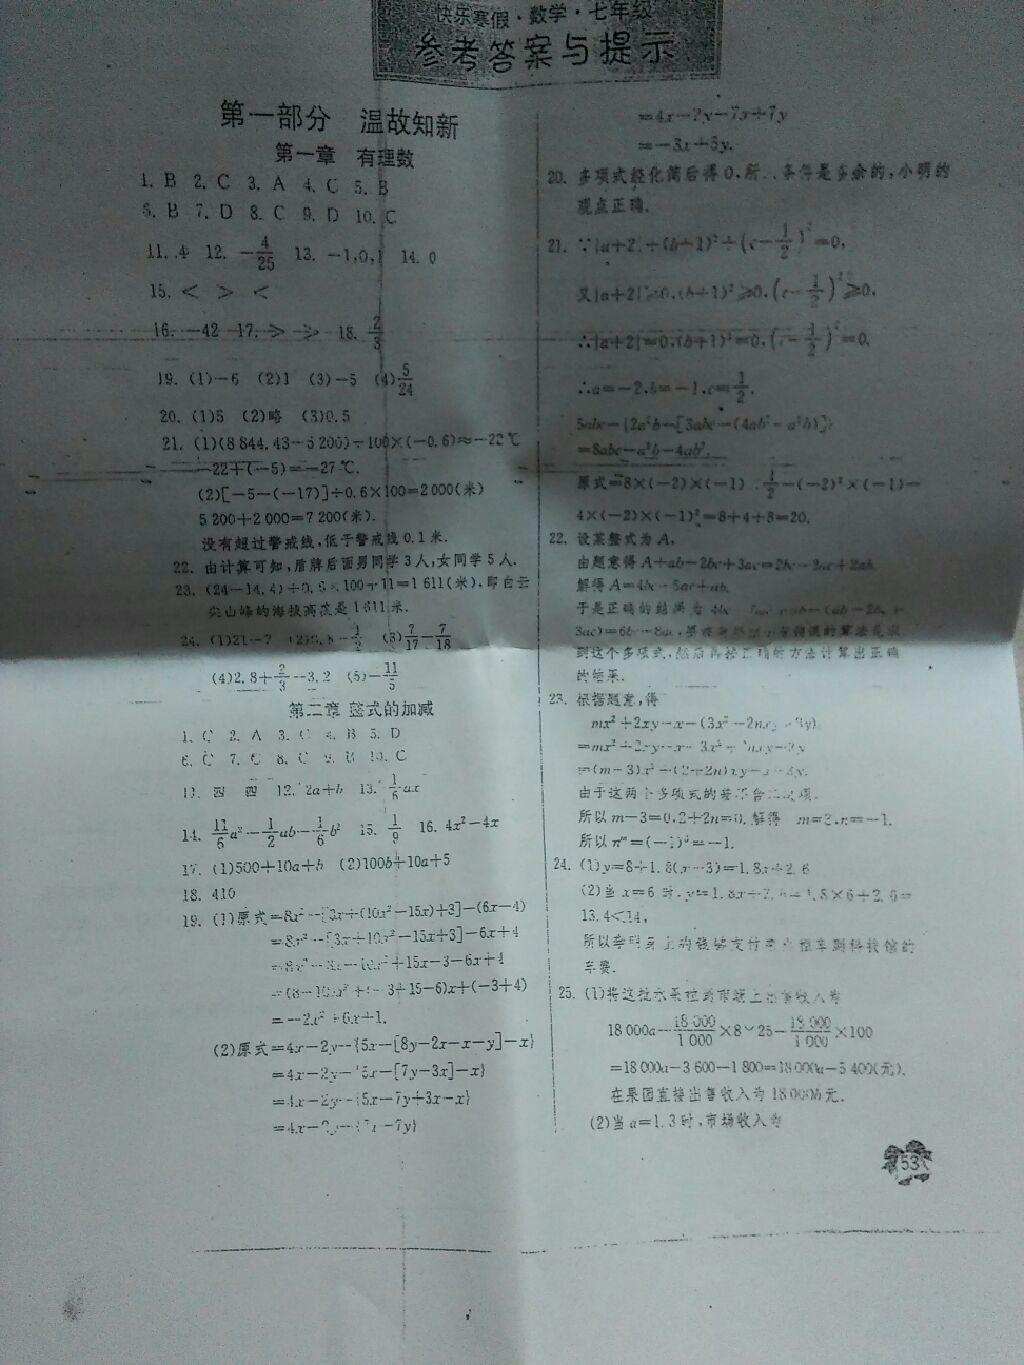 快乐寒假·数学·七年级
参考答案与提示
第一部分 温故知新
第一章 有理数
1. B 2. C 3. A 4. C 5. B
6. B 7. D 8. C 9. D 10. C
11. 4 12. -4/25 13. -1,0,1 14. 0
15. < > <
16. -42 17. > > 18. 2/3
19. (1)-6 (2)1 (3)-5 (4)5/24
20. (1)5 (2)略 (3)0.5
21. (1)(8 844.43-5 200)÷100×(-0.6)≈-22℃
-22+(-5)=-27℃.
(2)[-5-(-17)]÷0.6×100=2 000(米)
5 200+2 000=7 200(米).
没有超过警戒线,低于警戒线0.1米.
22. 由计算可知,盾牌后面男同学3人,女同学5人.
23. (24-14.4)÷0.6×100+11=1 611(米),即白云
尖山峰的海拔高度是1 611米.
24. (1)21-7
(4)2.8+2/3-3.2 (5)-11/5
第二章 整式的加减
1. C 2. A 3. C 4. B 5. D
6. C 7. C 8. C 9. B 10. C
11. 四 四 12. 2a+b 13. 1/6 ax
14. 11/6 a²-1/2 ab-1/6 b² 15. 1/9 16. 4x²-4x
17. (1)500+10a+b (2)100b+10a+5
18. 410
19. (1)原式=8x²-[3x+(10x²-15x)+3]-(6x-4)
=8x²-[3x+10x²-15x+3]-6x+4
=8x²-3x-10x²+15x-3-6x+4
=(8-10)x²+(-3+15-6)x+(-3+4)
=-2x²+6x+1.
(2)原式=4x-2y-{5x-[8y-2x-x-y]-x}
=4x-2y-{5x-[7y-3x]-x}
=4x-2y-{5x-7y+3x-x}
=4x-2y-{7x-7y}
=4x-2y-7x+7y
=-3x+5y.
20. 多项式经化简后得0,所 条件是多余的,小明的
观点正确.
21. ∵|a+2|+(b+1)²+(c-1/2)²=0,
又|a+2|≥0,(b+1)²≥0,(c-1/2)²≥0,
∴|a+2|=0,(b+1)²=0,(c-1/2)²=0,
∴a=-2,b=-1,c=1/2.
5abc-{2a²b-[3abc-(4ab²-a²b)]}
=8abc-a²b-4ab².
原式=8×(-2)×(-1)×1/2-(-2)²×(-1)-
4×(-2)×(-1)²=8+4+8=20.
22. 设某整式为A,
由题意得A+ab-2bc+3ac=2bc-2ac+2ab,
解得A=4bc-5ac+ab.
于是正确的结果为
到这个多项式,然后再按正确的方法计算出正确
的结果.
23. 根据题意,得
mx²+2xy-x-(3x²-2nxy+3y)
=mx²+2xy-x-3x²+2nxy-3y
=(m-3)x²+(2+2n)xy-x-3y.
由于这两个多项式的差不含二次项,
所以m-3=0,2+2n=0,解得 m=3,n=-1.
所以nᵐ=(-1)³=-1.
24. (1)y=8+1.8(x-3)=1.8x+2.6
(2)当x=6时,y=1.8x+2.6=1.8×6+2.6=
13.4<14,
所以李明身上的钱够支付乘出租车到科技馆的
车费.
25. (1)将这批水果拉到市场上出售收入为
18 000a-18 000/1 000×8×25-18 000/1 000×100
=18 000a-3 600-1 800=18 000a-5 400(元).
在果园直接出售收入为18 000b元.
(2)当a=1.3时,市场收入为
53